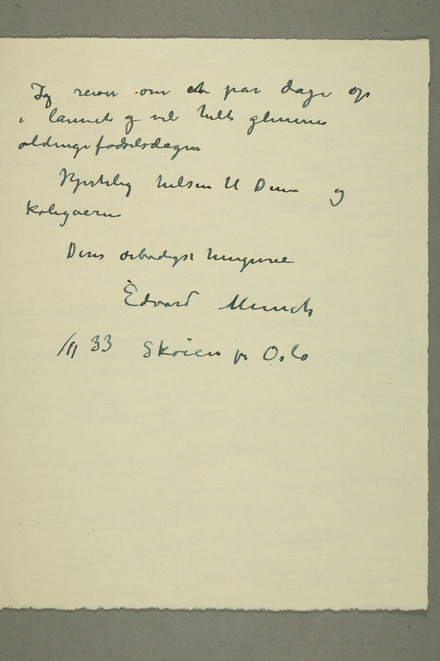 Jeg reiser om et par dage op
i lannet og vil helst glemme
oldinge fødselsdagen
Hjertelig hilsen til Dem og
kolegaerne
Deres ærbødigst hengivne
Edvard Munch
/11 33 Skøien pr Oslo